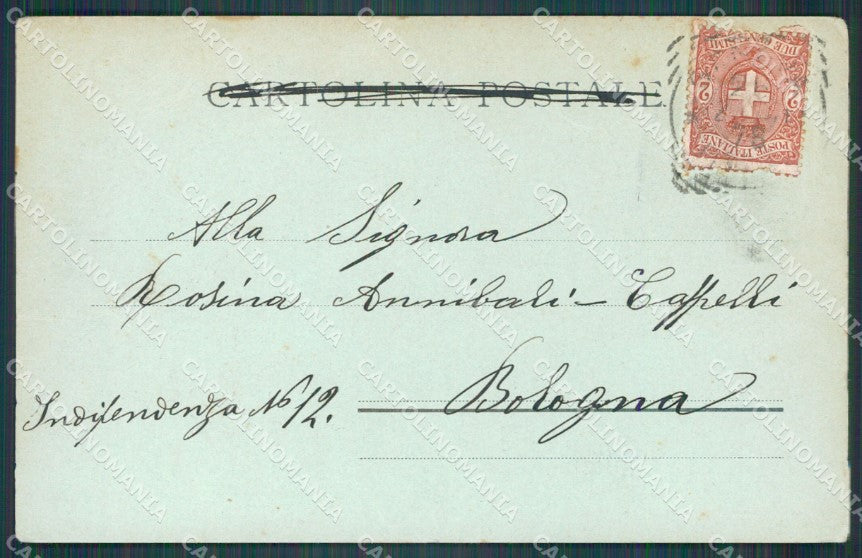 CARTOLINA POSTALE
DUE CENTESIMI
2 2
POSTE ITALIANE
Alla Signora
Rosina Annibali - Cappelli
Bologna
Indipendenza No 12.
CARTOLINOMANIA